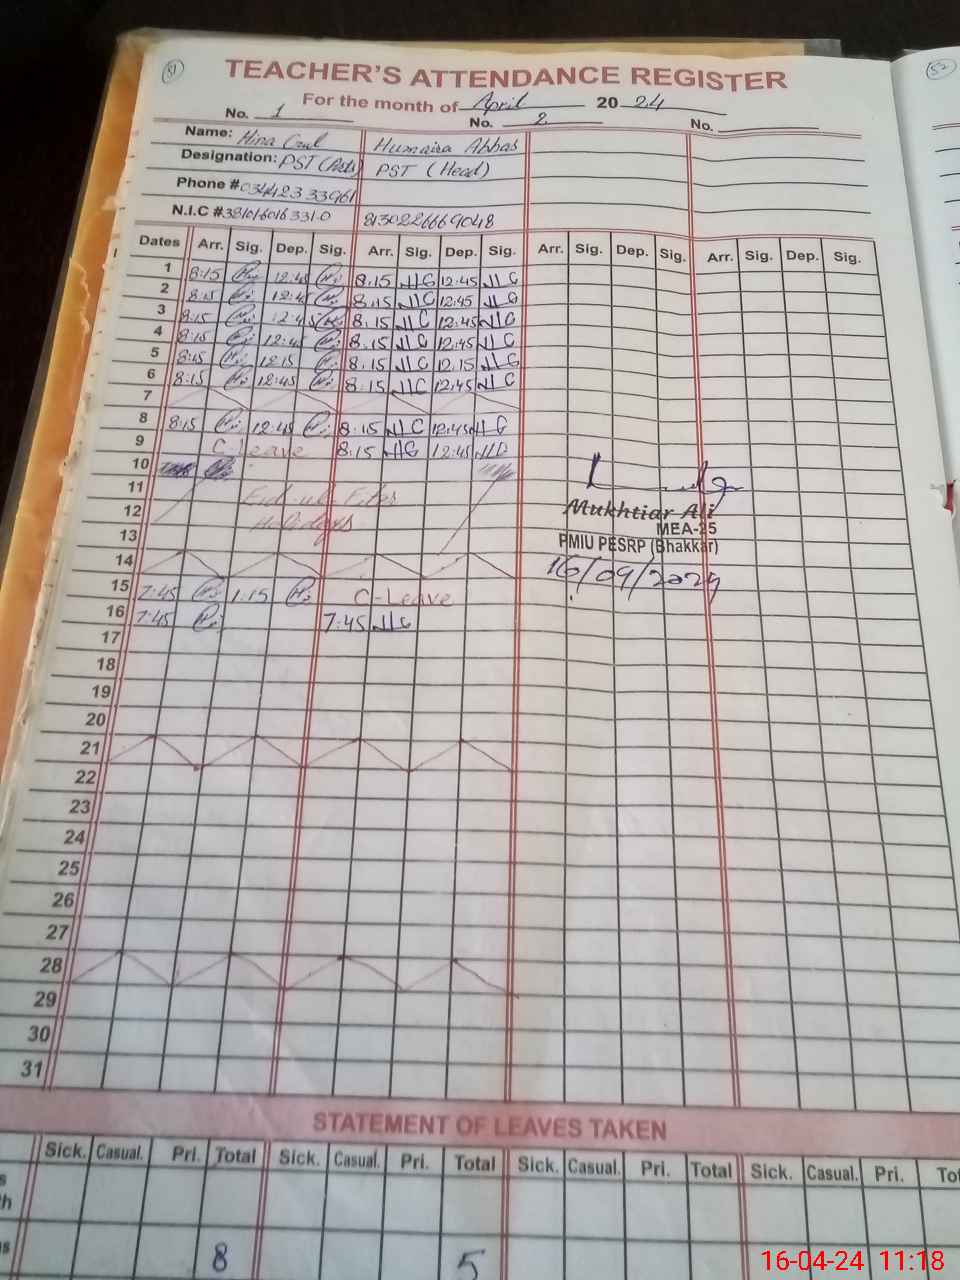 51
52
TEACHER'S ATTENDANCE REGISTER
For the month of April 2024
No. 1 No. 2 No.
Name: Hina Gul Humaira Abbas
Designation: PST (Arts) PST (Head)
Phone # 03442333961
N.I.C # 38101-6016331-0 8130226669048
Dates Arr. Sig. Dep. Sig. Arr. Sig. Dep. Sig. Arr. Sig. Dep. Sig. Arr. Sig. Dep. Sig.
1 8:15 12:45 8:15 12:45
2 8:15 12:45 8:15 12:45
3 8:15 12:45 8:15 12:45
4 8:15 12:45 8:15 12:45
5 8:15 12:15 8:15 12:15
6 8:15 12:45 8:15 12:45
7
8 8:15 12:45 8:15 12:45
9 C-Leave 8:15 12:45
10
11 Eid-ul-Fiter
12 Holidays
13
14
15 7:45 1:15 C-Leave
16 7:45 7:45
17
18
19
20
21
22
23
24
25
26
27
28
29
30
31
Mukhtiar Ali
MEA-25
PMIU PESRP (Bhakkar)
16/04/2024
STATEMENT OF LEAVES TAKEN
Sick. Casual. Pri. Total Sick. Casual. Pri. Total Sick. Casual. Pri. Total Sick. Casual. Pri.
8 5
16-04-24 11:18